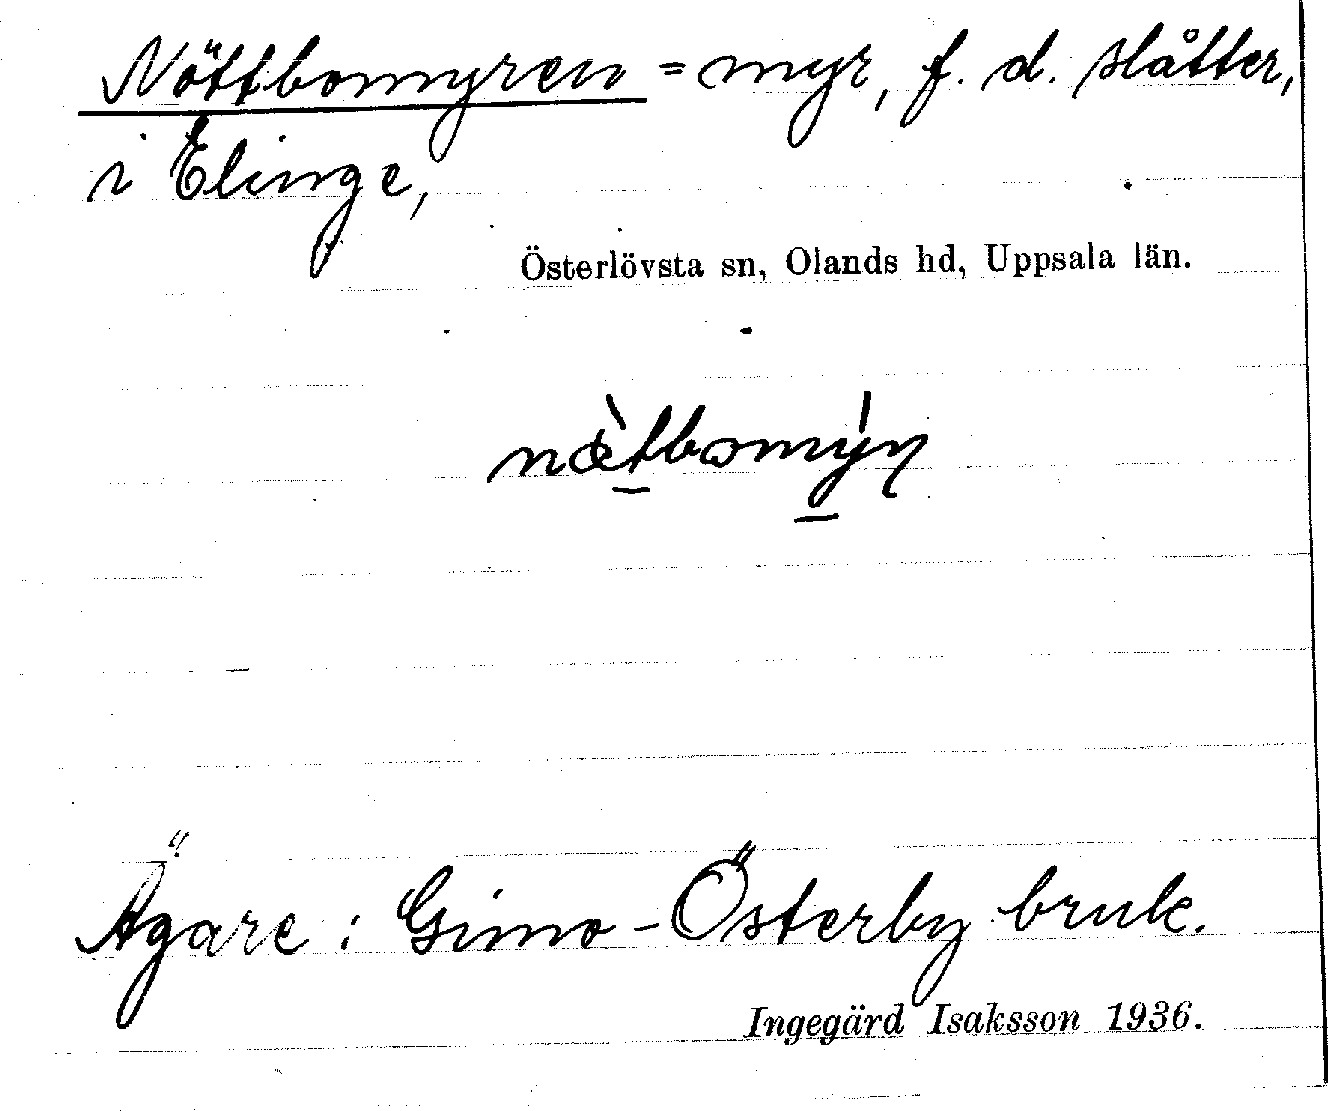 Nöttbomyren = myr, f. d. slåtter,
i Elinge,
Österlövsta sn, Olands hd, Uppsala län.
nœ̀tbomýn
Ägare: Gimo-Österby bruk.
Ingegärd Isaksson 1936.